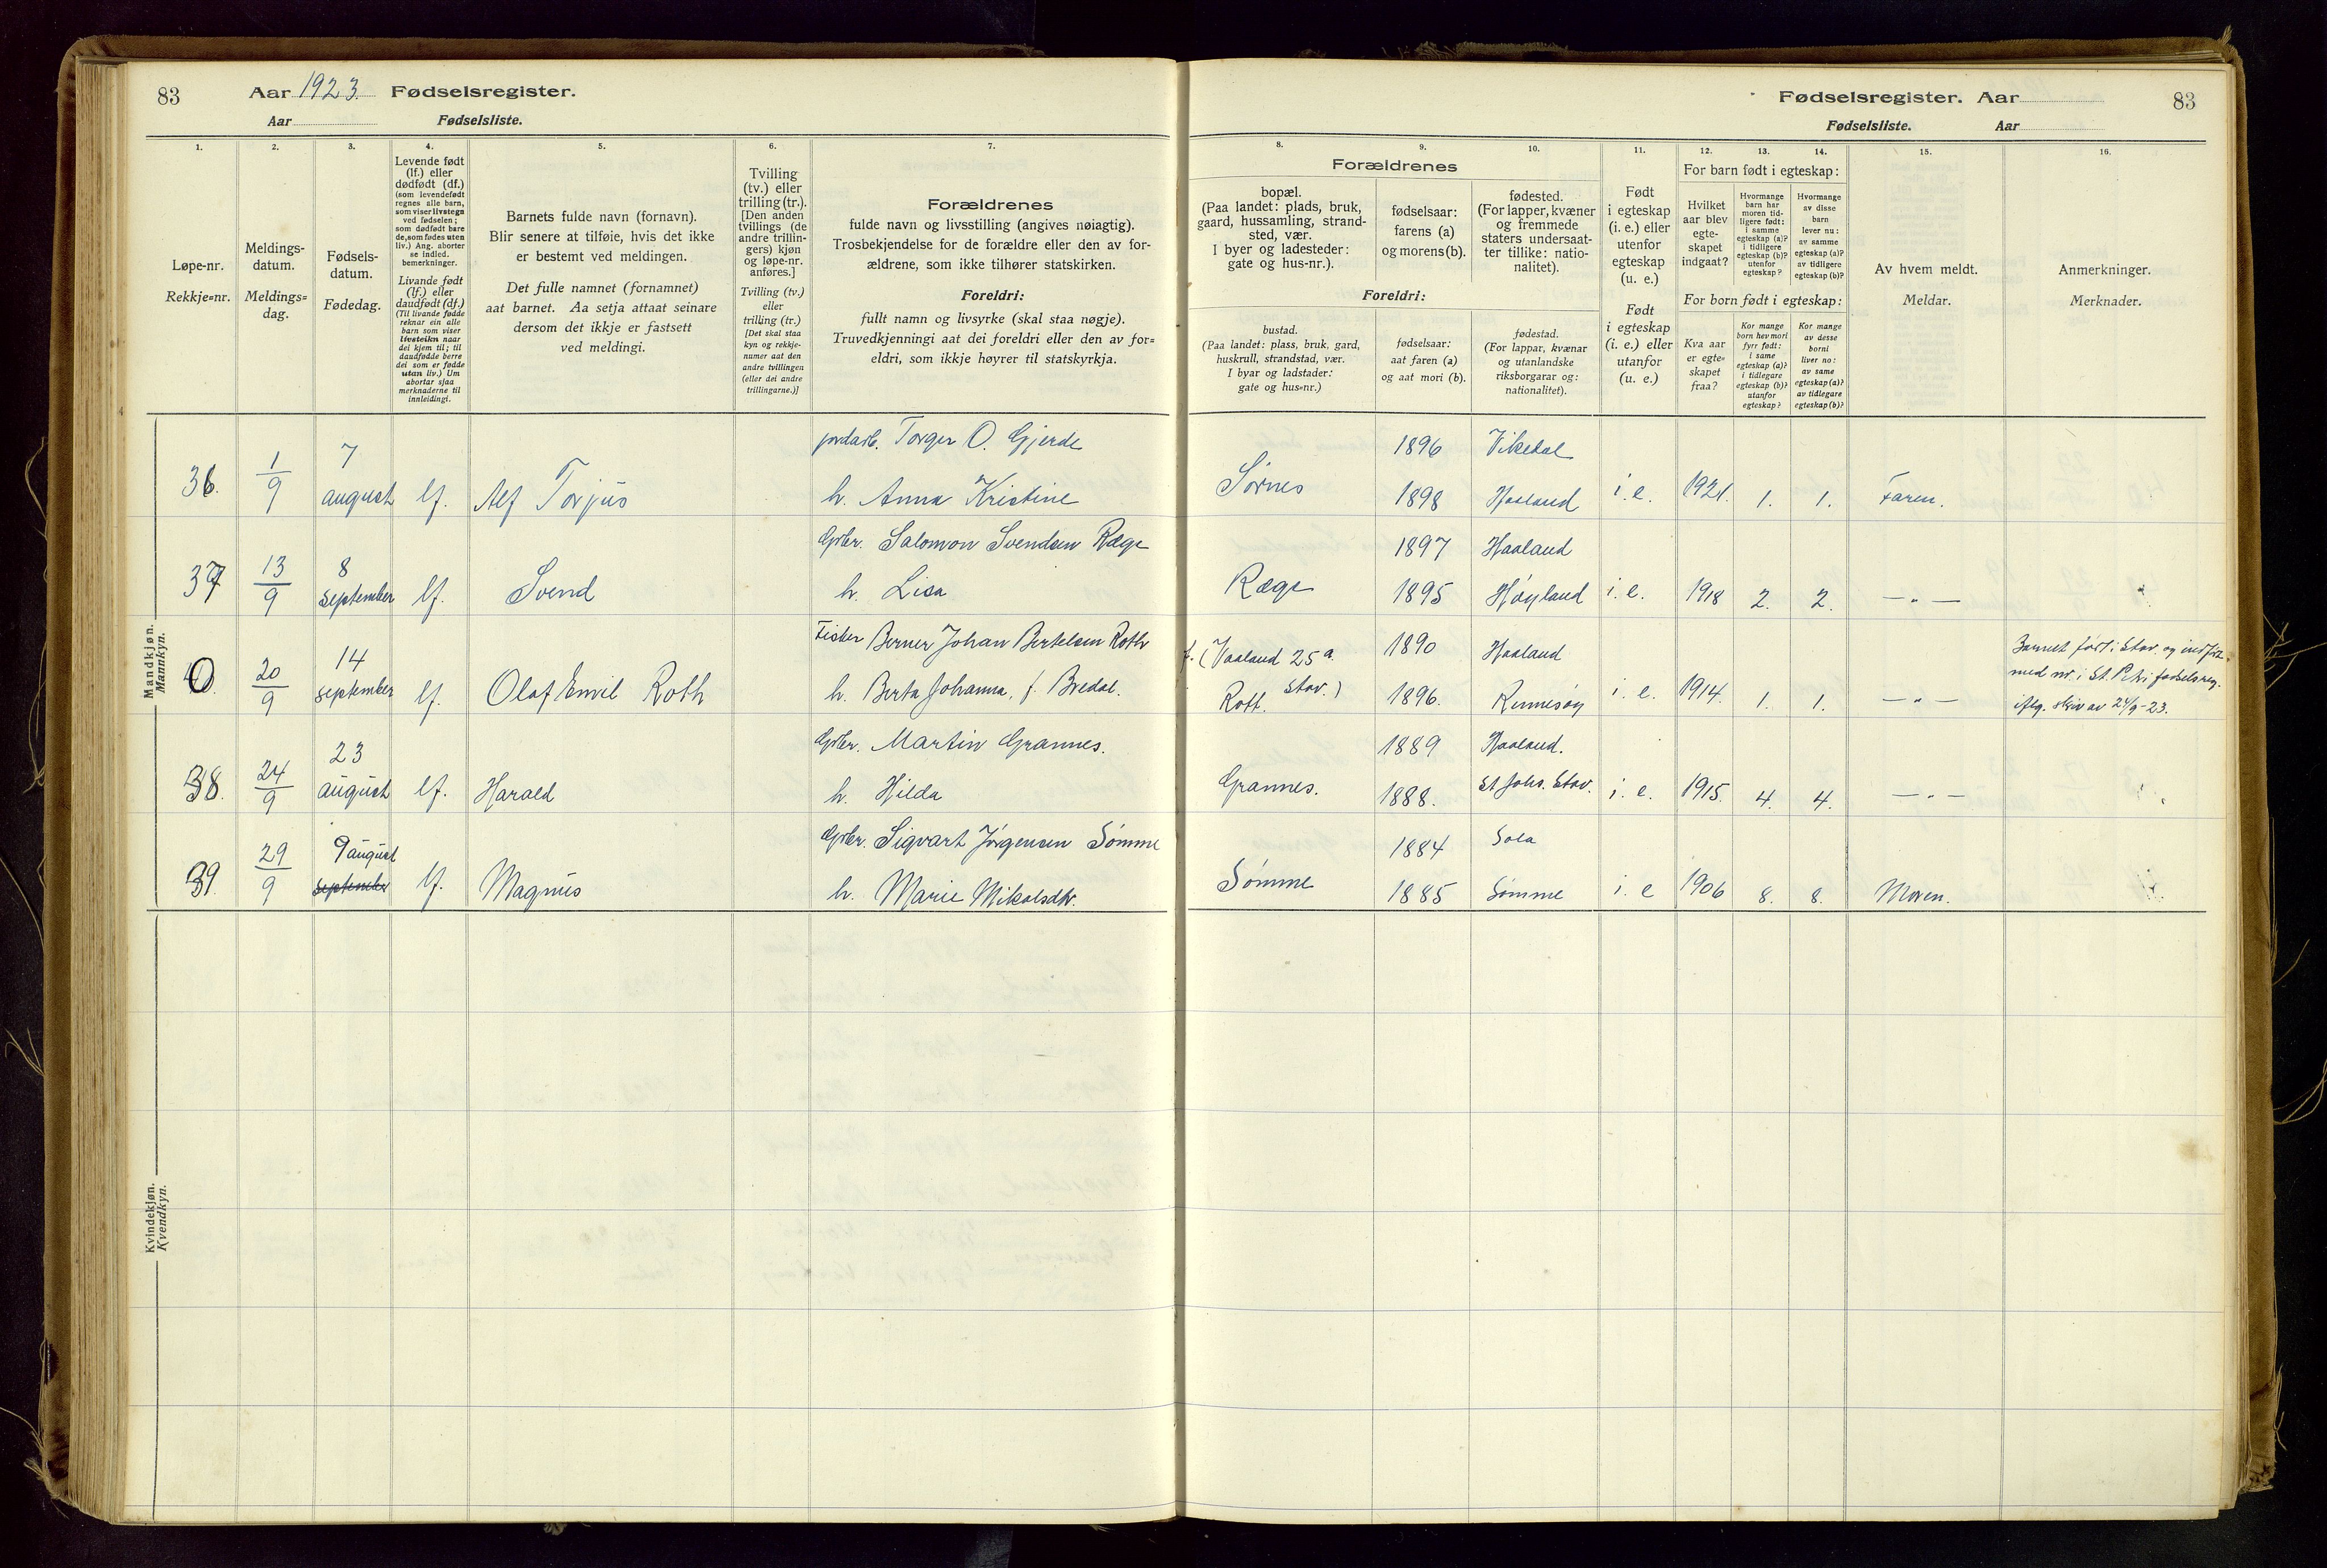 83 Aar 1923. Fødselsregister.
Aar Fødselsliste.
Fødselsregister. Aar 83
Fødselsliste. Aar
1.
Løpe-nr.
Rekkje=nr.
2.
Meldings-
datum.
Meldings=
dag.
3.
Fødsels-
datum.
Fødedag.
4.
Levende født
(lf.) eller
dødfødt (df.)
(som levendefødt
regnes alle barn,
som viser livstegn
ved fødselen;
som dødfødt bare
de, som fødes uten
liv.) Ang. aborter
se indled.
bemerkninger.
Livande født
(lf.) eller
daudfødt (df.)
(Til livande fødde
reknar ein alle
barn som viser
livsteikn naar
dei kjem til; til
daudfødde berre
dei som er fødde
utan liv.) Um
abortar sjaa
merknaderne til
innleidingi.
5.
Barnets fulde navn (fornavn).
Blir senere at tilføie, hvis det ikke
er bestemt ved meldingen.
Det fulle namnet (fornamnet)
aat barnet. Aa setja attaat seinare
dersom det ikkje er fastsett
ved meldingi.
6.
Tvilling
(tv.) eller
trilling (tr.).
[Den anden
tvillings (de
andre trillin-
gers) kjøn
og løpe-nr.
anføres.]
Tvilling (tv.)
eller
trilling (tr.)
[Det skal staa
kyn og rekkje-
numer aat den
andre tvillingen
(eller dei andre
trillingarne.)]
7.
Forældrenes
fulde navn og livsstilling (angives nøiagtig).
Trosbekjendelse for de forældre eller den av for-
ældrene, som ikke tilhører statskirken.
Foreldri:
fullt namn og livsyrke (skal staa nøgje).
Truvedkjenningi aat dei foreldri eller den av for=
eldri, som ikkje høyrer til statskyrkja.
Forældrenes
8.
bopæl.
(Paa landet: plads, bruk,
gaard, hussamling, strand-
sted, vær.
I byer og ladesteder:
gate og hus-nr.).
Foreldri:
bustad.
(Paa landet: plass, bruk, gard,
huskrull, strandstad, vær.
I byar og ladstader:
gate og hus=nr.)
9.
fødselsaar:
farens (a)
og morens (b).
fødselsaar:
aat faren (a)
og aat mori (b).
10.
fødested.
(For lapper, kvæner
og fremmede
staters undersaat-
ter tillike: natio-
nalitet).
fødestad.
(For lappar, kvænar
og utanlandske
riksborgarar og:
nationalitet).
11.
Født
i egteskap
(i. e.) eller
utenfor
egteskap
(u. e.)
Født
i egteskap
(i. e.) eller
utanfor
(u. e.)
12. 13. 14.
For barn født i egteskap:
Hvilket
aar blev
egte-
skapet
indgaat?
Hvormange
barn har
moren tid-
ligere født:
i samme
egteskap (a)?
i tidligere
egteskap (b)?
utenfor
egteskap?
Hvormange
av disse
barn
lever nu:
av samme
egteskap (a)?
av tidligere
egteskap (b)?
For born født i egteskap:
Kva aar
er egte=
skapet
fraa?
Kor mange
born hev mori
fyrr født:
i same
egteskap (a)?
i tidlegare
egteskap (b)?
utanfor
egteskap?
Kor mange
av desse
borni
liver no:
av same
egteskap (a)?
av tidlegare
egteskap (b)?
15.
Av hvem meldt.
Meldar.
16.
Anmerkninger.
Merknader.
Mandkjøn.
Mannkyn.
36. 1/9 7 august lf. Alf Torjus jordarb. Torger O. Gjerde
h. Anna Kristine
Sörnes 1896 Vikedal
1898 Haaland i. e. 1921. 1. 1. Faren.
37 13/9 8 september lf. Svend Gbr. Salomon Svendsen Ræge
h. Lisa
Ræge 1897 Haaland
1895 Høyland i. e. 1918 2. 2. — " —
0. 20/9 14 september lf. Olaf Emil Roth Fisker Berner Johan Bertelsen Roth
h. Berta Johanna, f. Bredal.
f. (Vaaland 25a. Stav.)
Rott. 1890 Haaland
1896. Rennesøy i. e. 1914. 1. 1. — " —
Barnet født i Stav. og indført
med nr. i St. Petri fødselsreg.
iflg. skriv av 24/9-23.
38. 24/9 23 august lf. Harald Gbr. Martin Grannes.
h. Hilda
Grannes. 1889 Haaland.
1888. St Johs. Stav. i. e. 1915. 4. 4. — " —
39. 29/9 9 august september lf. Magnus Gbr. Sigvart Jörgensen Sömme
h. Marie Mikalsdtr.
Sömme 1884 Sola
1885 Sömme i. e 1906 8. 8. Moren.
Kvindekjøn.
Kvendkyn.